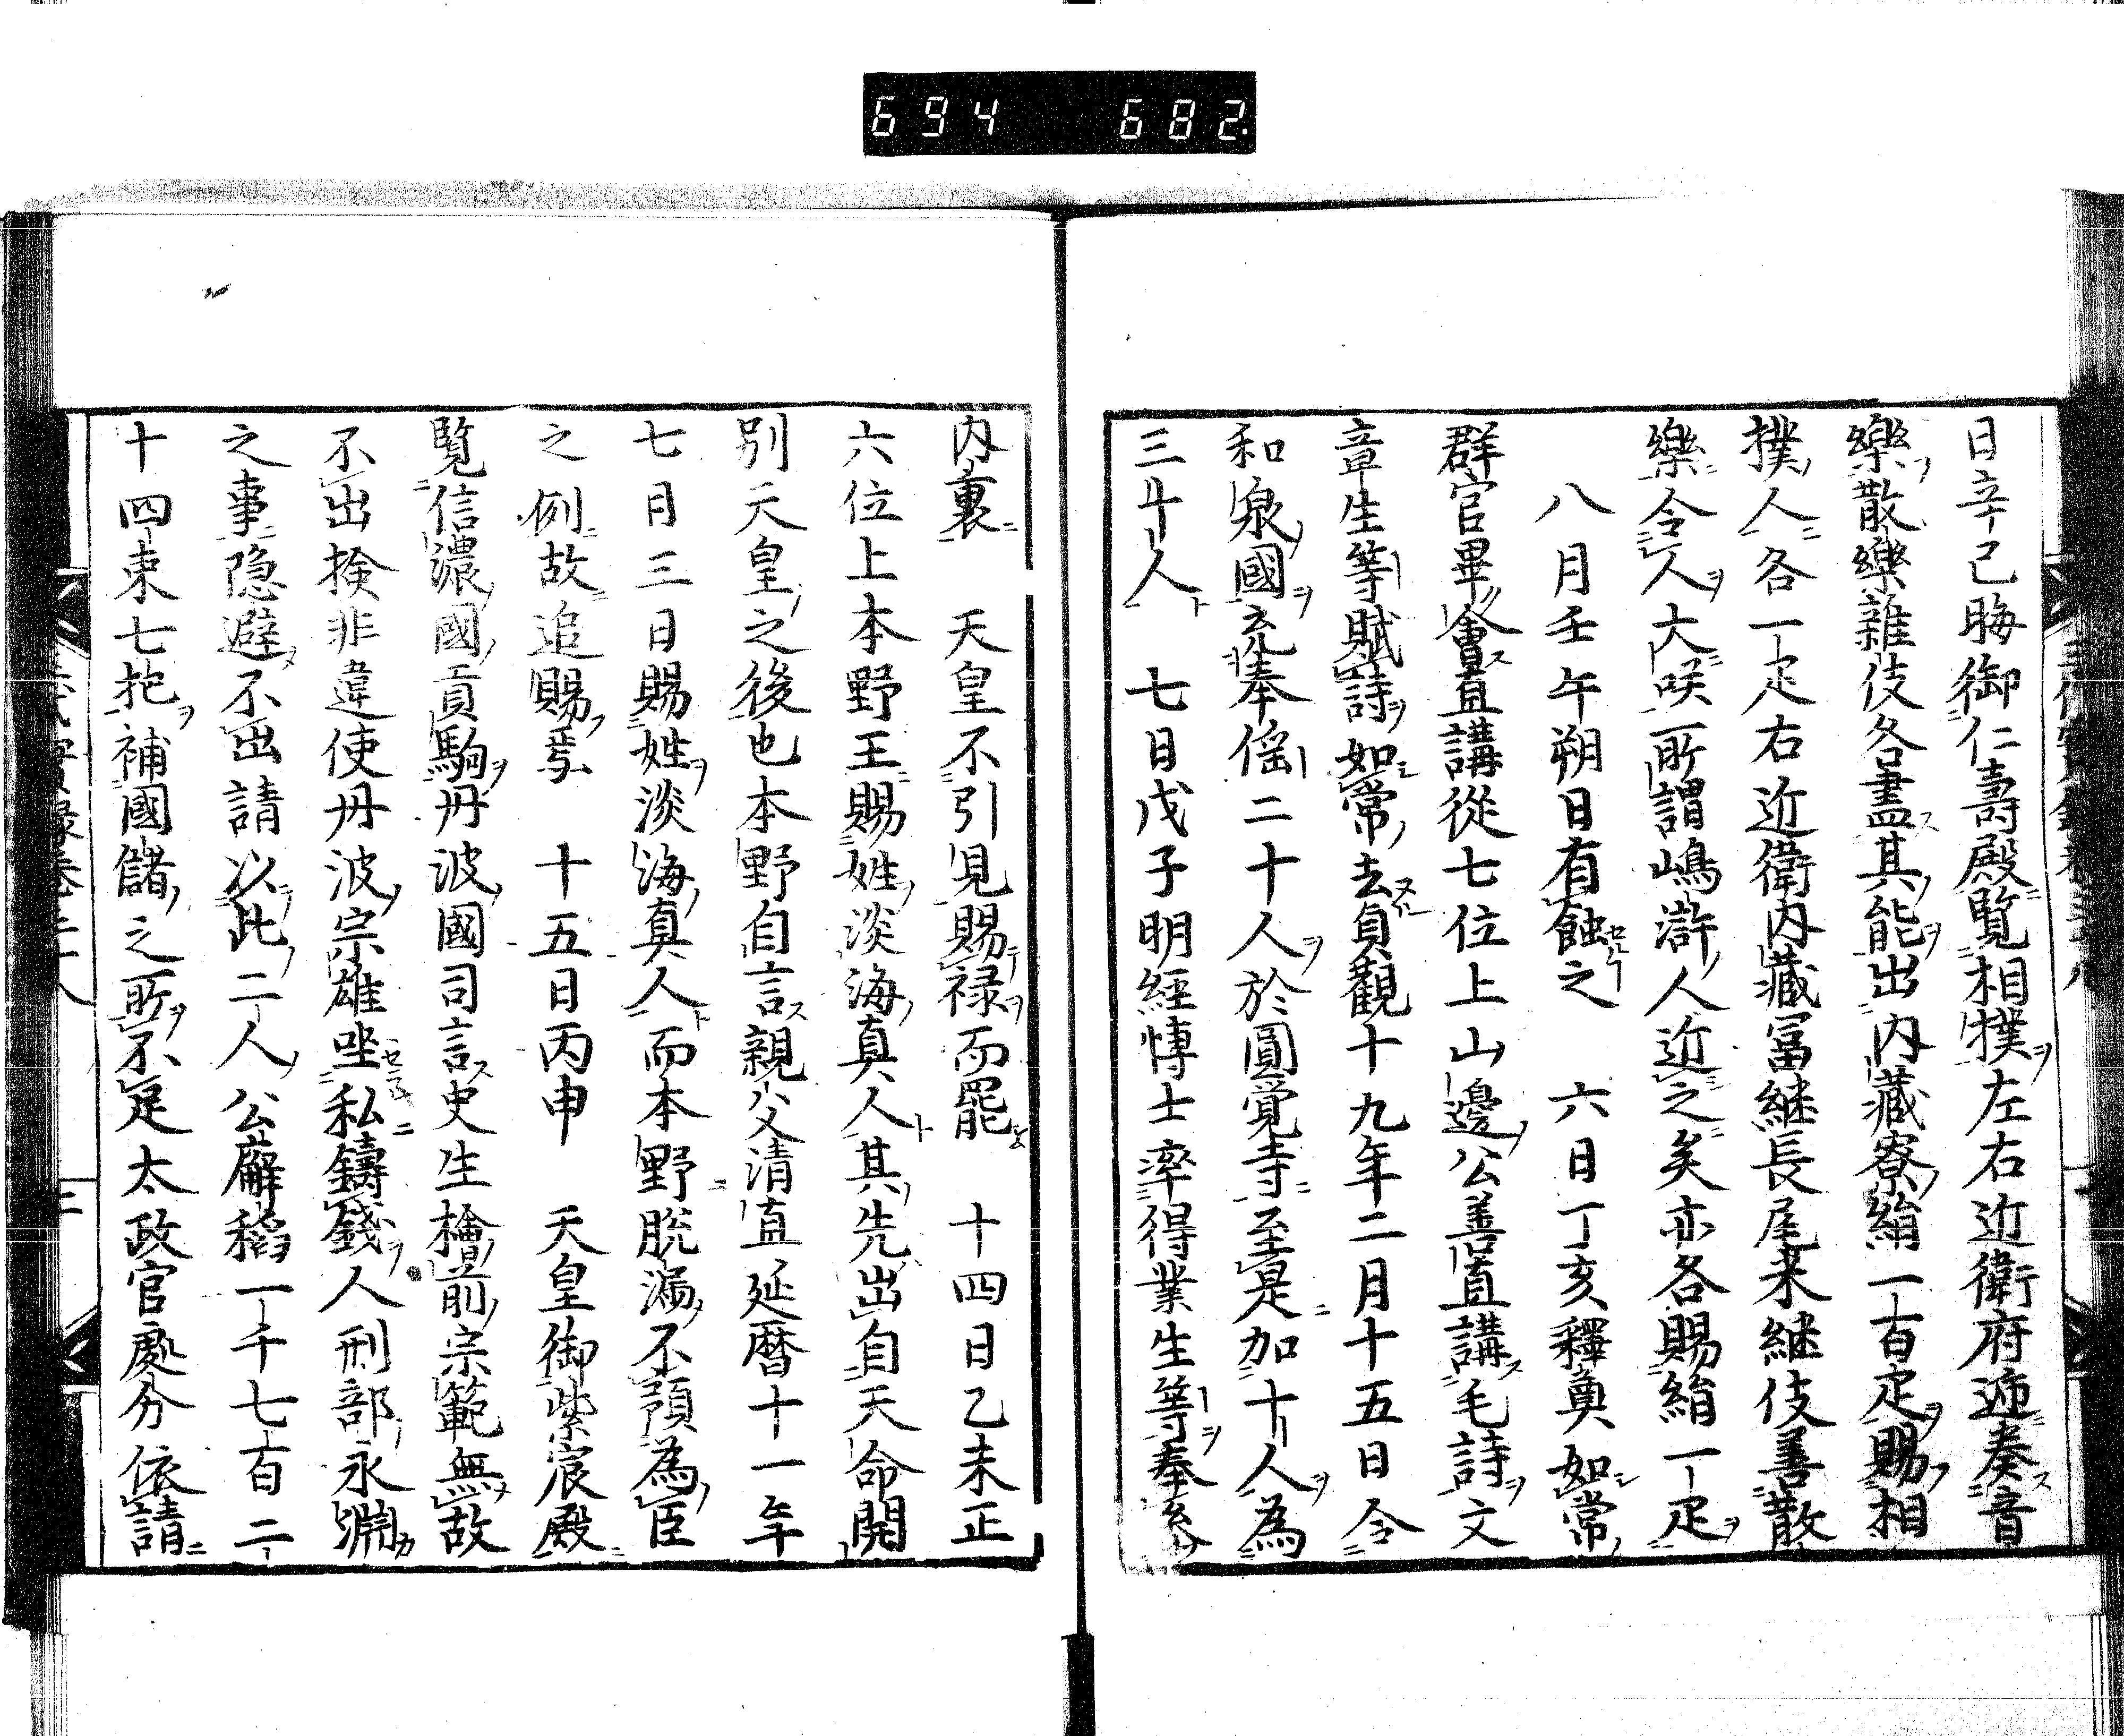 694 682.
日辛巳晦御仁壽殿覧相撲左右近衛府逓奏音
樂散樂雜伎各盡其能出内藏寮絹一百疋賜相
撲人各一疋右近衛内藏富継長尾末継伎善散
樂令人大咲所謂嶋滸人近之矣亦各賜絹一疋
八月壬午朔日有蝕之　六日丁亥釋奠如常
群官畢會直講從七位上山邊公善直講毛詩文
章生等賦詩如常去貞觀十九年二月十五日令
和泉國充奉徭二十人於圓覺寺至是加十人為
三十人　七日戊子明經博士率得業生等奉參
内裏　天皇不引見賜禄而罷　十四日乙未正
六位上本野王賜姓淡海真人其先出自天命開
別天皇之後也本野自言親父清直延曆十一年
七月三日賜姓淡海真人而本野脱漏不預為臣
之例故追賜焉　十五日丙申　天皇御紫宸殿
覧信濃國貢駒丹波國司言史生檜前宗範無故
不出検非違使丹波宗雄坐私鑄錢人刑部永淵
之事隠避不出請以此二人公廨稻一千七百二
十四束七把補國儲之所不足太政官處分依請